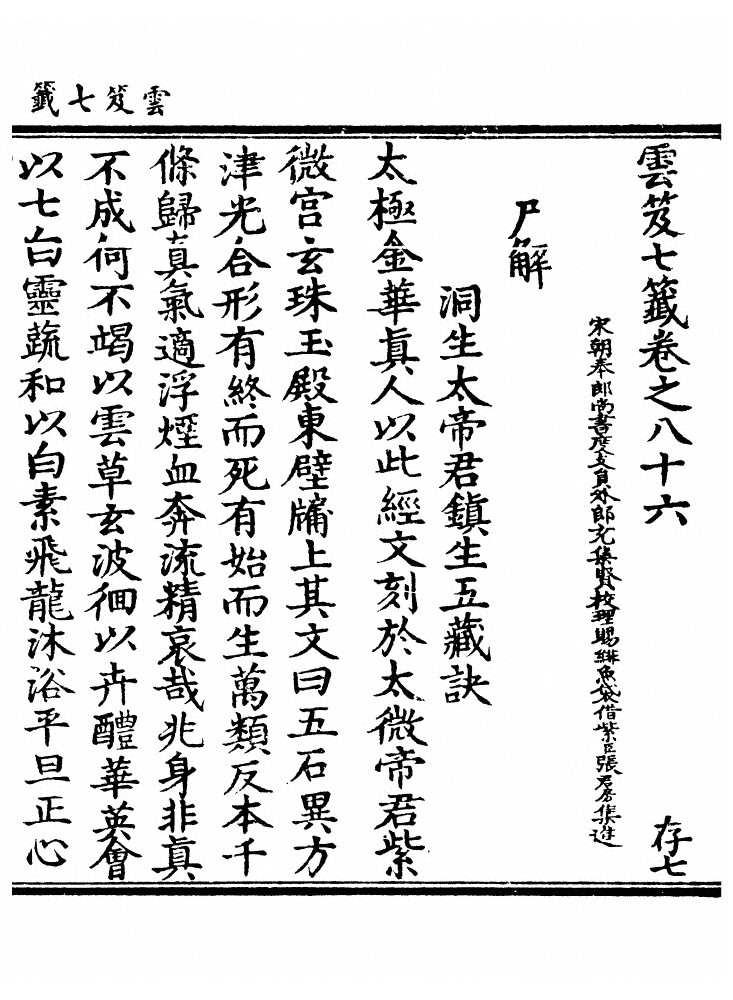 雲笈七籤
雲笈七籤卷之八十六 存七
宋朝奉郎尚書度支員外郎充集賢校理賜緋魚袋借紫臣張君房集進
尸解
洞生太帝君鎮生五藏訣
太極金華眞人以此經文刻於太微帝君紫
微宮玄珠玉殿東壁牖上其文曰五石異方
津光合形有終而死有始而生萬類反本千
條歸真氣適浮煙血奔流精哀哉兆身非眞
不成何不竭以雲草玄波徊以卉醴華英會
以七白靈蔬和以白素飛龍沐浴平旦正心